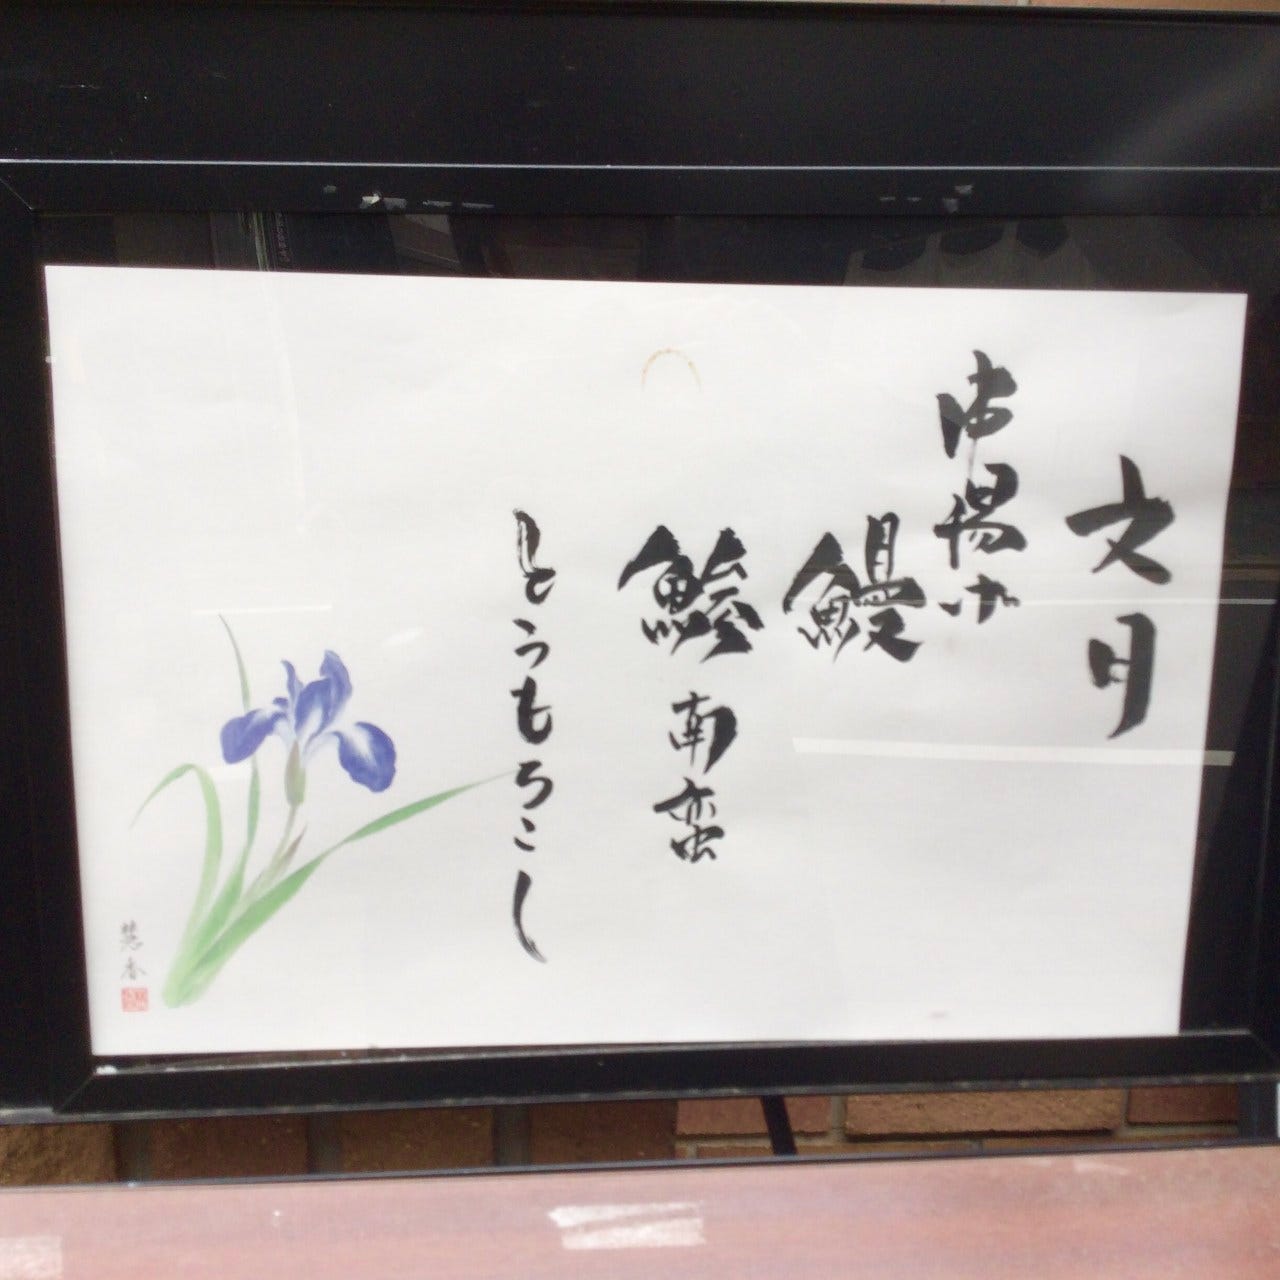 文月
串揚げ
鰻
鯵南蛮
とうもろこし
慧香